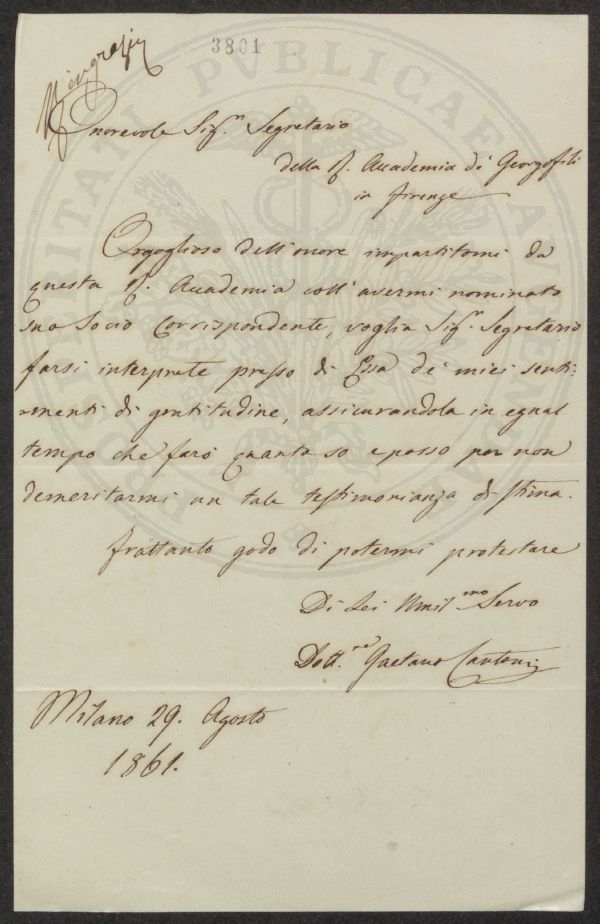 3801
Ringrazia
Onorevole Sig.r Segretario
della R. Accademia de' Georgofili
in Firenze
Orgoglioso dell'onore impartitomi da
questa R. Accademia coll'avermi nominato
suo Socio Corrispondente, voglia Sig.r Segretario
farsi interprete presso di Essa de' miei senti-
menti di gratitudine, assicurandola in egual
tempo che farò quanto so e posso per non
demeritarmi un tale testimonianza di stima.
Frattanto godo di potermi protestare
Di Lei Umil.mo Servo
Dott.re Gaetano Cantoni
Milano 29. Agosto
1861.
PROSPERITATI PVBLICAE AVGENDAE